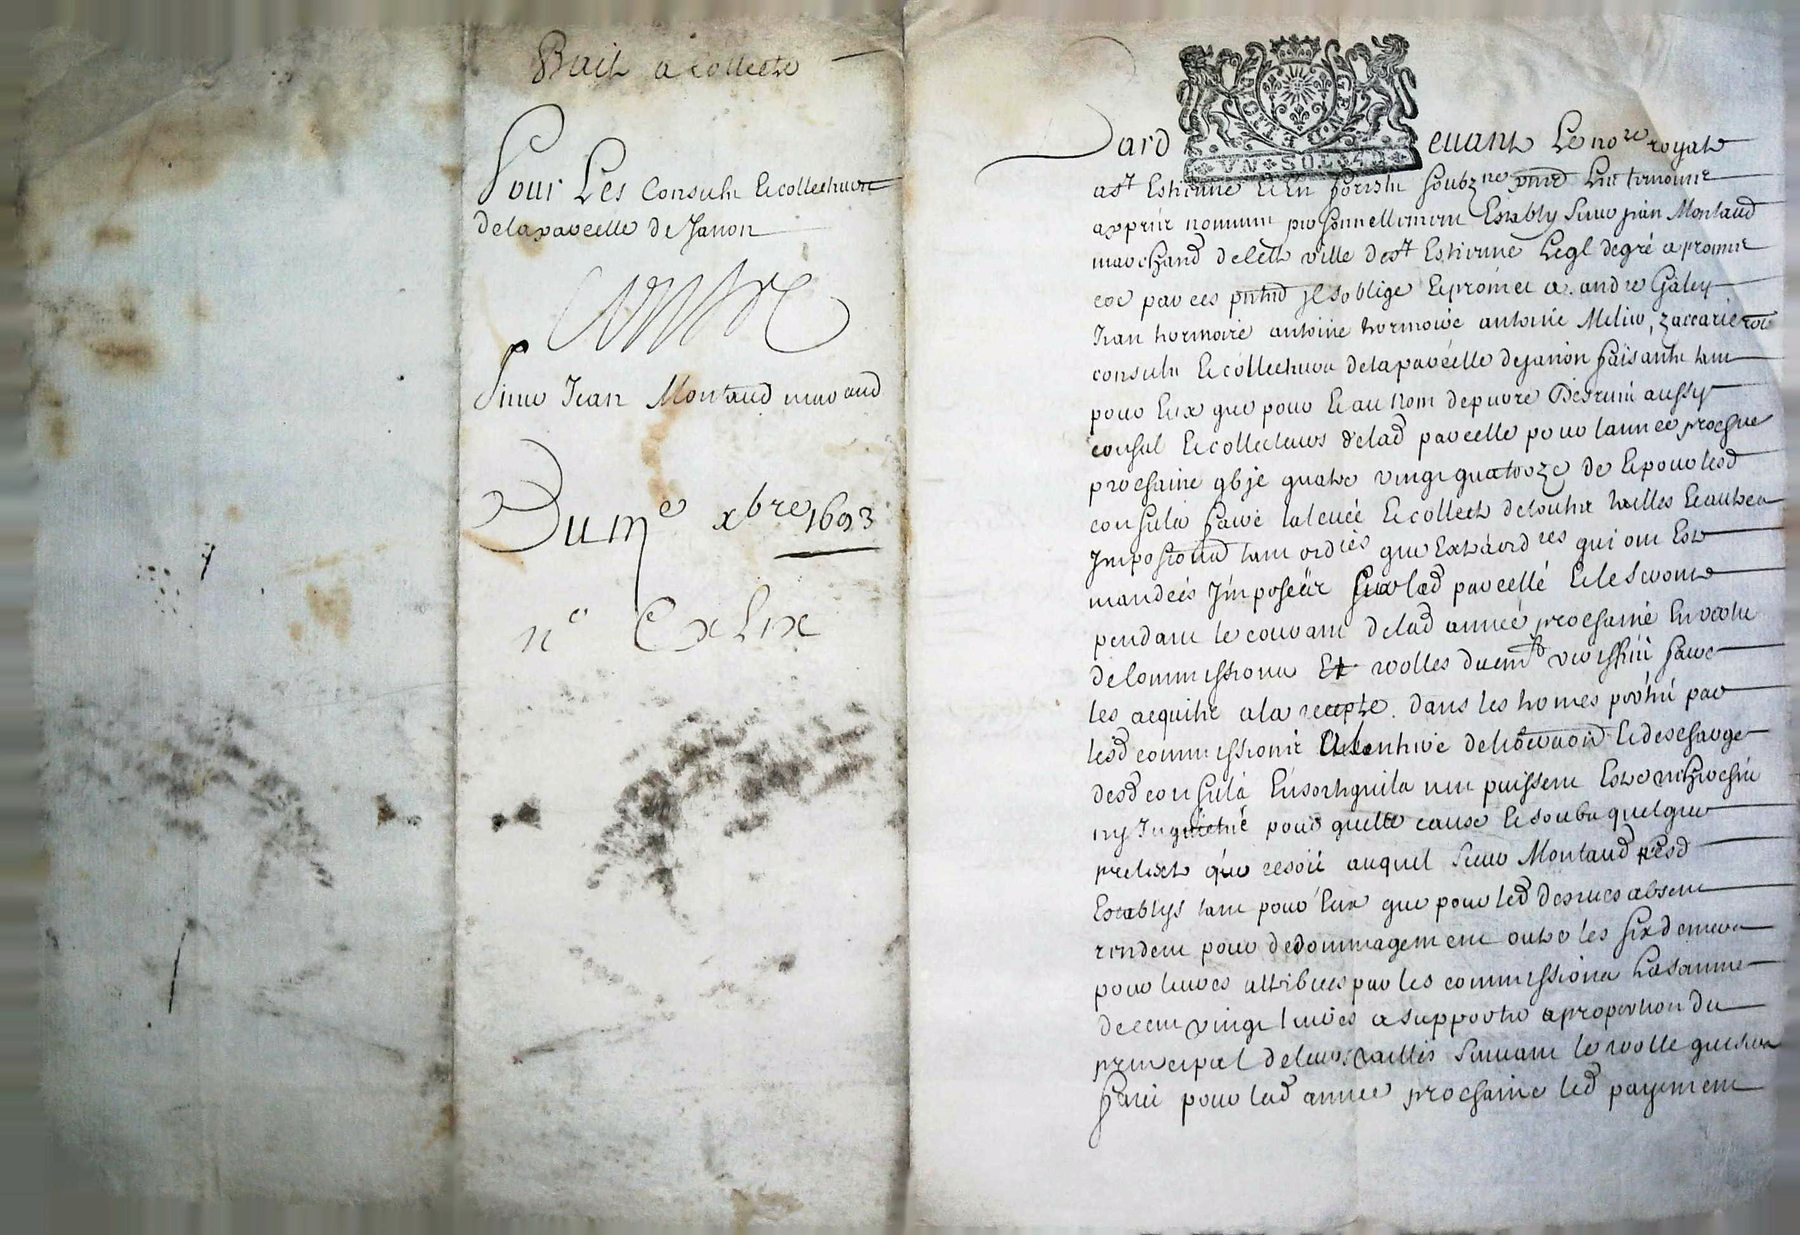 Bail a collecte
Pour Les Consulz & collecteurs
de la parcelle de Janon
Contre
Sieur Jean Montaud marand
Du 11e xbre 1693
ne CxLix
GENE DE LION
UN SOL 4 D
Pard evant Le nore royal
a st Estienne & En forestz soubzne
apres nommez personnellement Estably Sieur jean Montaud
marchand de lad ville de st Estienne Leql de gré a promis
par ces pntes jl soblige & promet a andre Galey
Jean hormoire antoine hormoire antoine Melier, zaccarie
consulz & collecteurs de la parcelle de janon faisantz tant
pour Eux que pour & au nom de pierre Desruis aussy
consul & collecteurs de lad parcelle pour lannee proche
prochaine gbje quatre vingt quatorze de & pour lesd
consulz faire la levée & collecte de toutes tailles & autres
Impositions tant ordres que Extraordres qui ont Esté
mandées Imposéés sur lad parcelle & le seront
pendant le courant de lad année prochaine En vertu
de commissions Et rolles
les acquits a la recepte dans les termes portés par
lesd commissions & de liberaon & descharge
desd consulz Ensorte quilz nen puissent Estre
ny Inquietés pour quelle cause & soubz quelque
pretexte que ce soit auquel Sieur Montaud lesd
Establys tant pour Eux que pour led desruis absent
rendent pour dedommagement outre les six deniers
pour livres attribues par les commissions la somme
de cent vingt livres a supporter a proportion du
principal de leurs tailles suivant le rolle qui sera
fait pour lad annee prochaine led payement